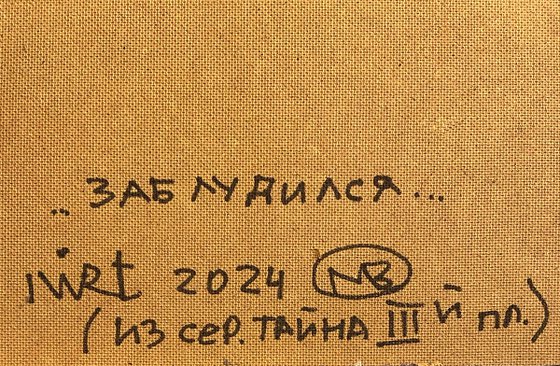 .. ЗАБЛУДИЛСЯ...
2024
(ИЗ СЕР. ТАЙНА III Й ПЛ.)